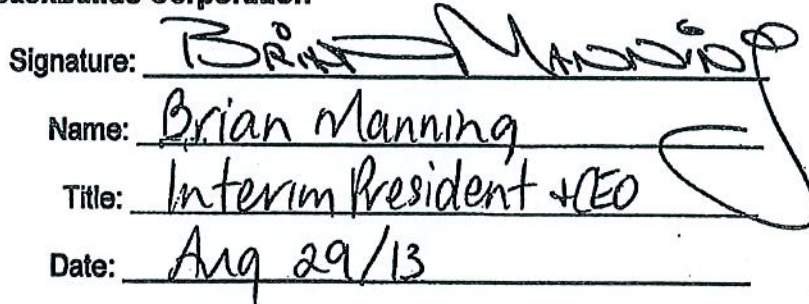 Corporation
Signature: Brian Manning
Name: Brian Manning
Title: Interim President + CEO
Date: Aug 29/13